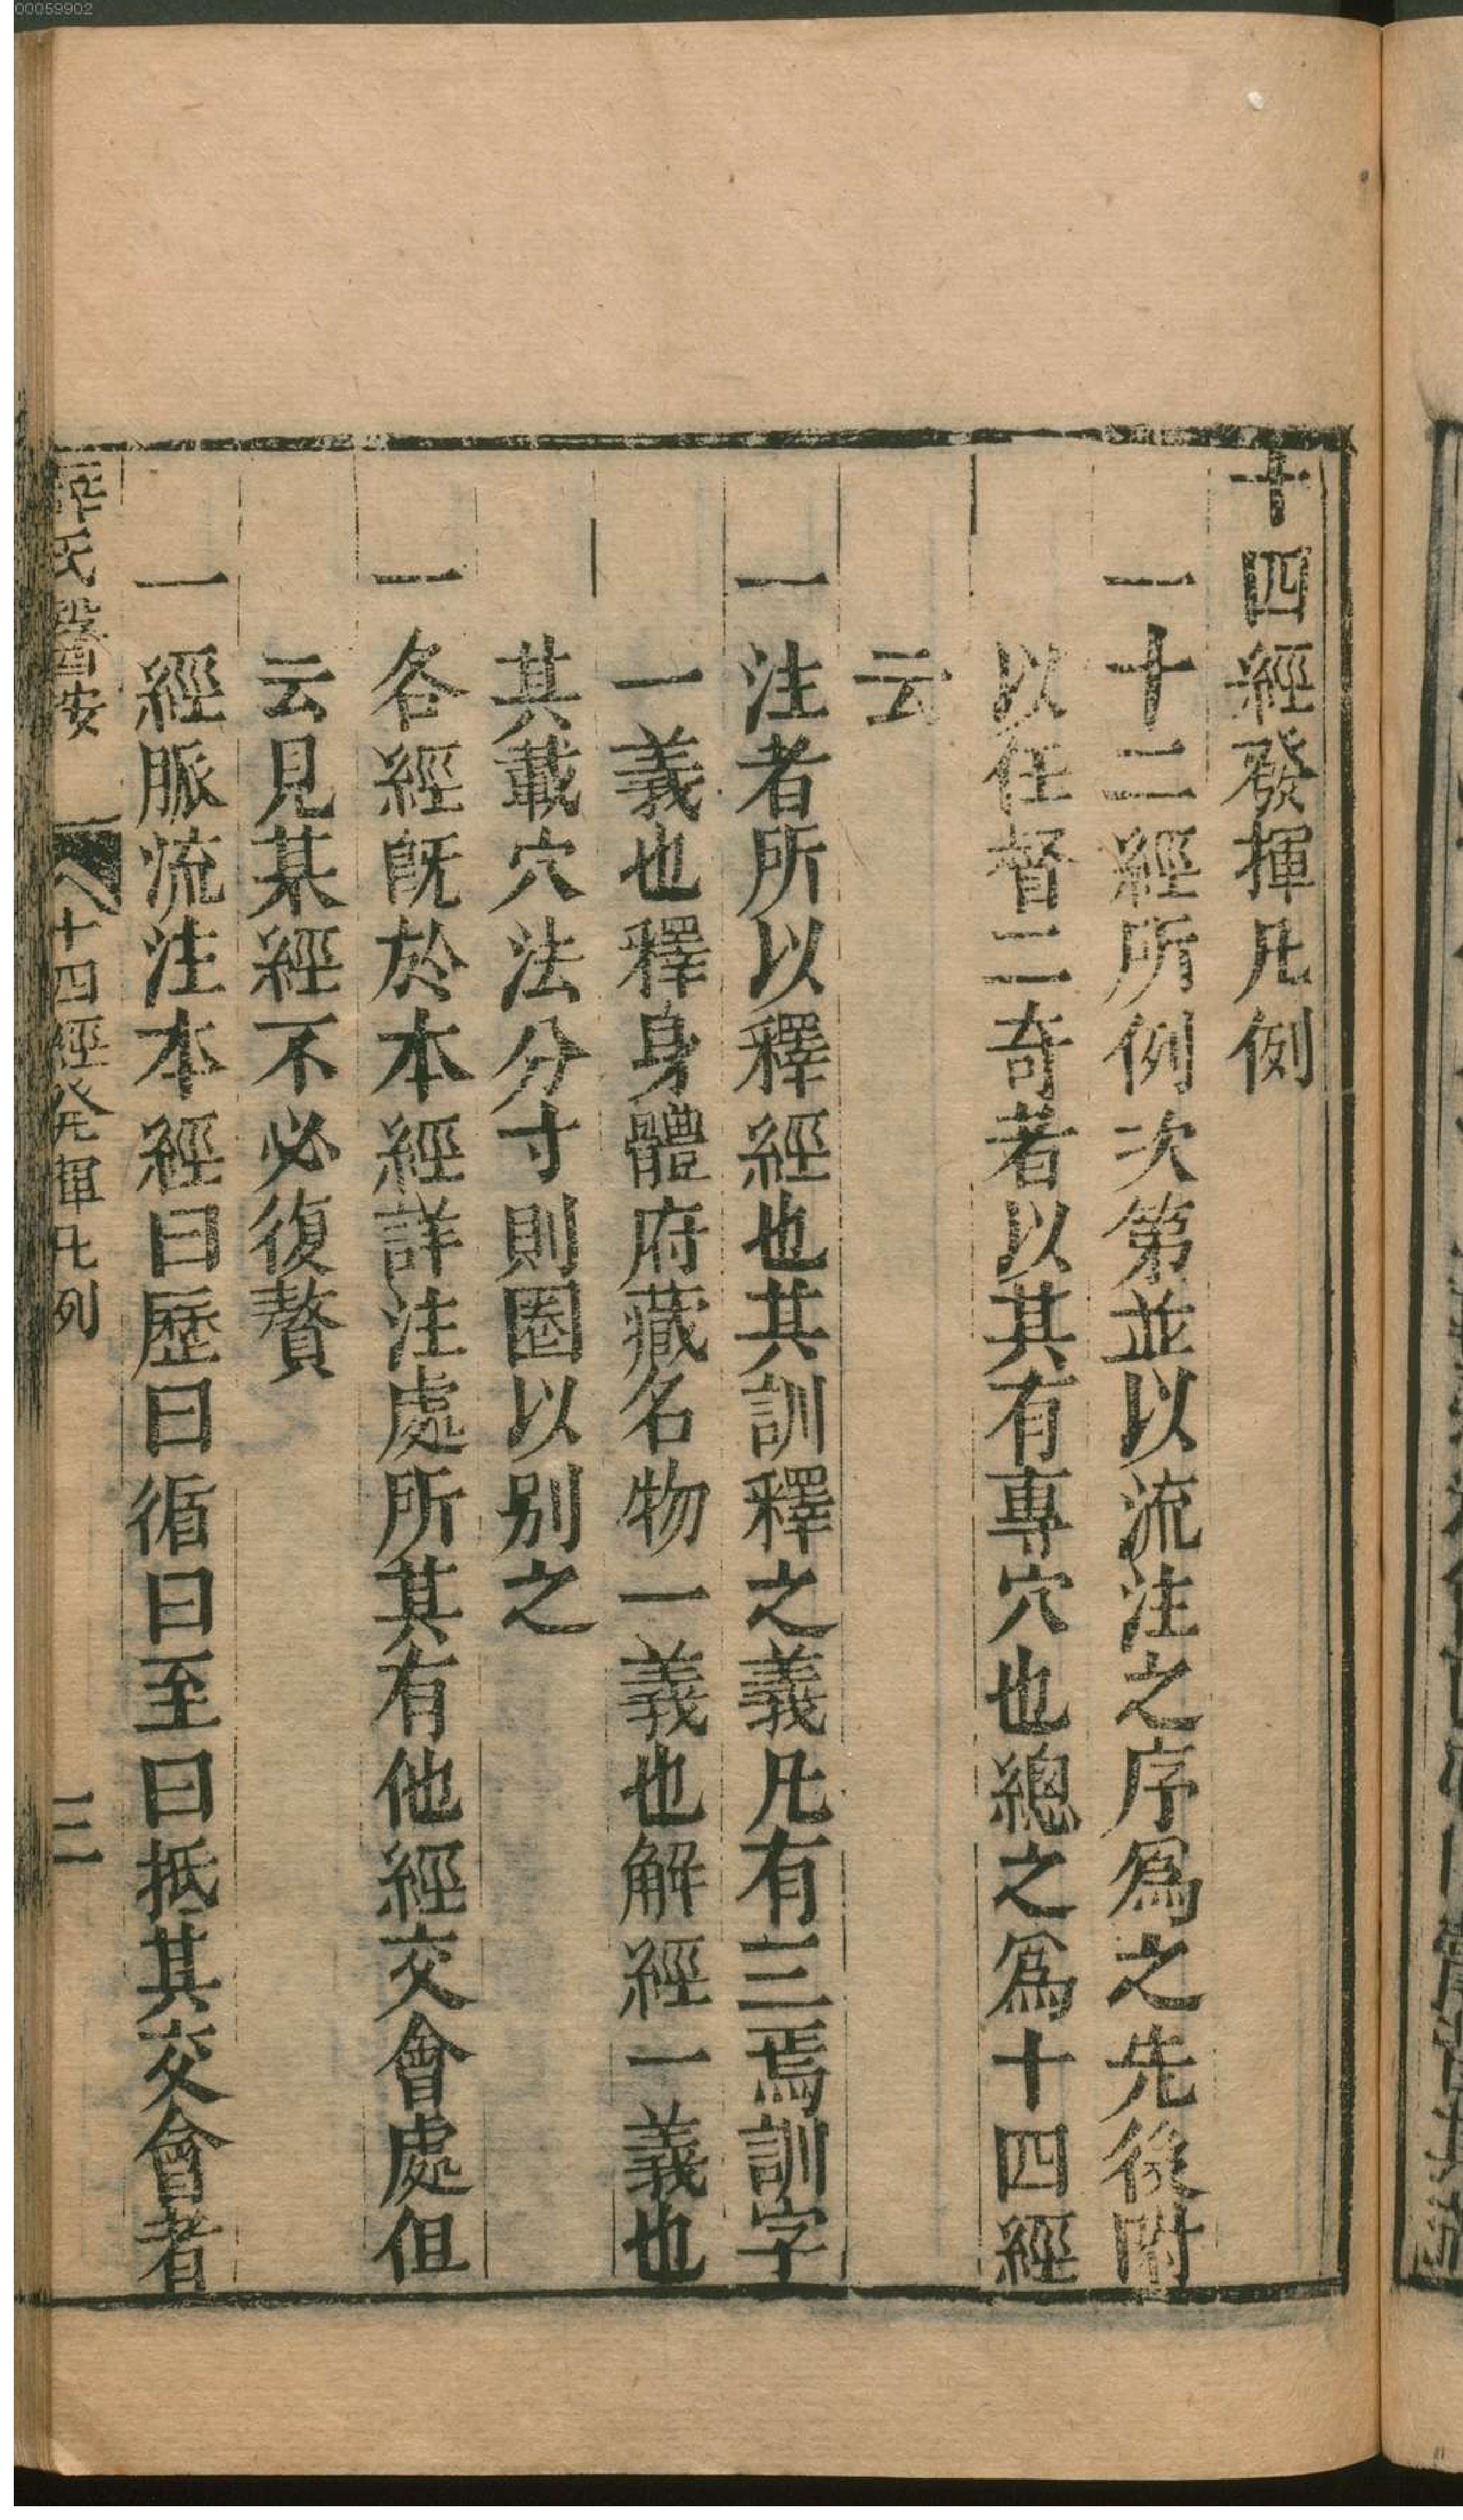 00059902
十四經發揮凡例
一十二經所例次第並以流注之序爲之先後附
以任督二奇者以其有專穴也總之爲十四經
云
一注者所以釋經也其訓釋之義凡有三焉訓字
一義也釋身體府藏名物一義也解經一義也
其載穴法分寸則圈以别之
一各經既於本經詳注處所其有他經交會處但
云見某經不必復贅
一經脈流注本經曰歷曰循曰至曰抵其交會者
薛氏醫按 十四經発揮凡例 三